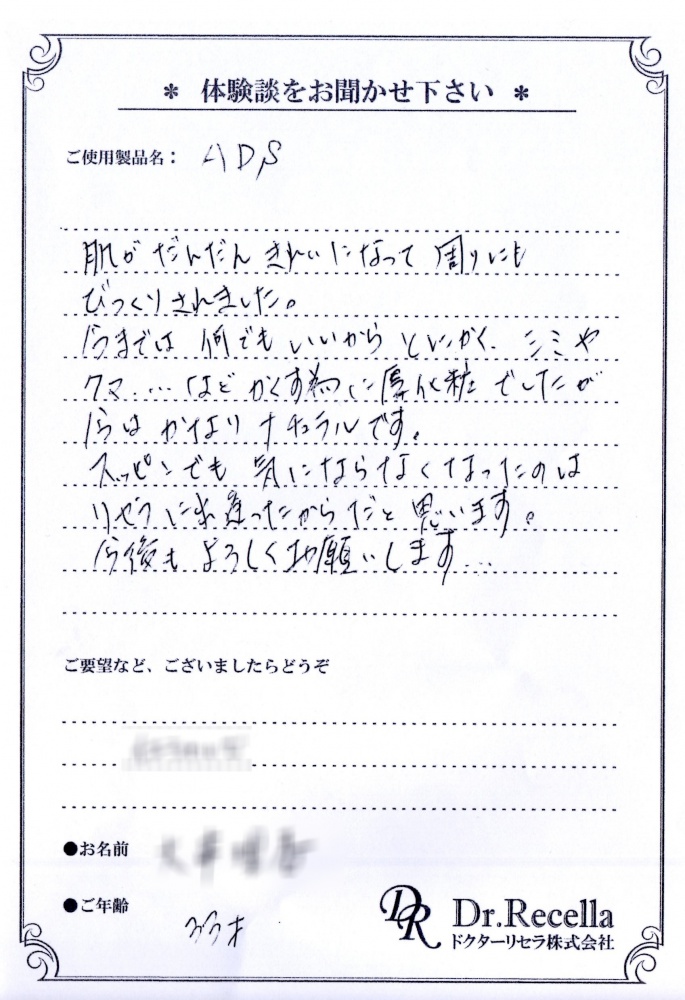 * 体験談をお聞かせ下さい *
ご使用製品名： ADS
肌が だんだん きれいになって 周りにも
びっくりされました。
今までは 何でも いいから とにかく、シミや
クマ…など かくす為に 厚化粧 でしたが
今は かなり ナチュラルです。
スッピンでも 気にならなくなったのは
リセラに出逢ったからだと 思います。
今後も よろしく お願いします…
ご要望など、ございましたらどうぞ
●お名前
●ご年齢
才
DR Dr.Recella
ドクターリセラ株式会社